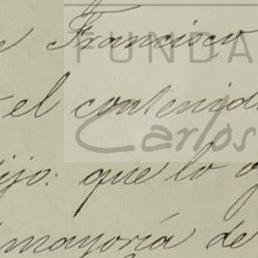 Francisco
FUNDA
el contenid
Carlos
ijo: que lo o
mayoría de